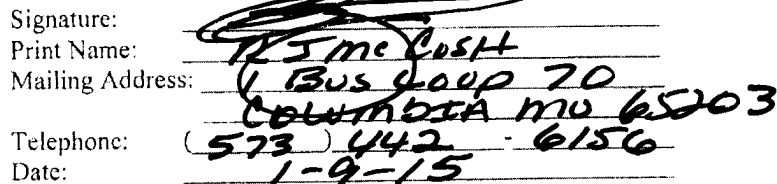 Signature:
Print Name: R J McCosH
Mailing Address: 1 Bus Loop 70
COLUMBIA MO 65203
Telephone: (573) 442 - 6156
Date: 1-9-15